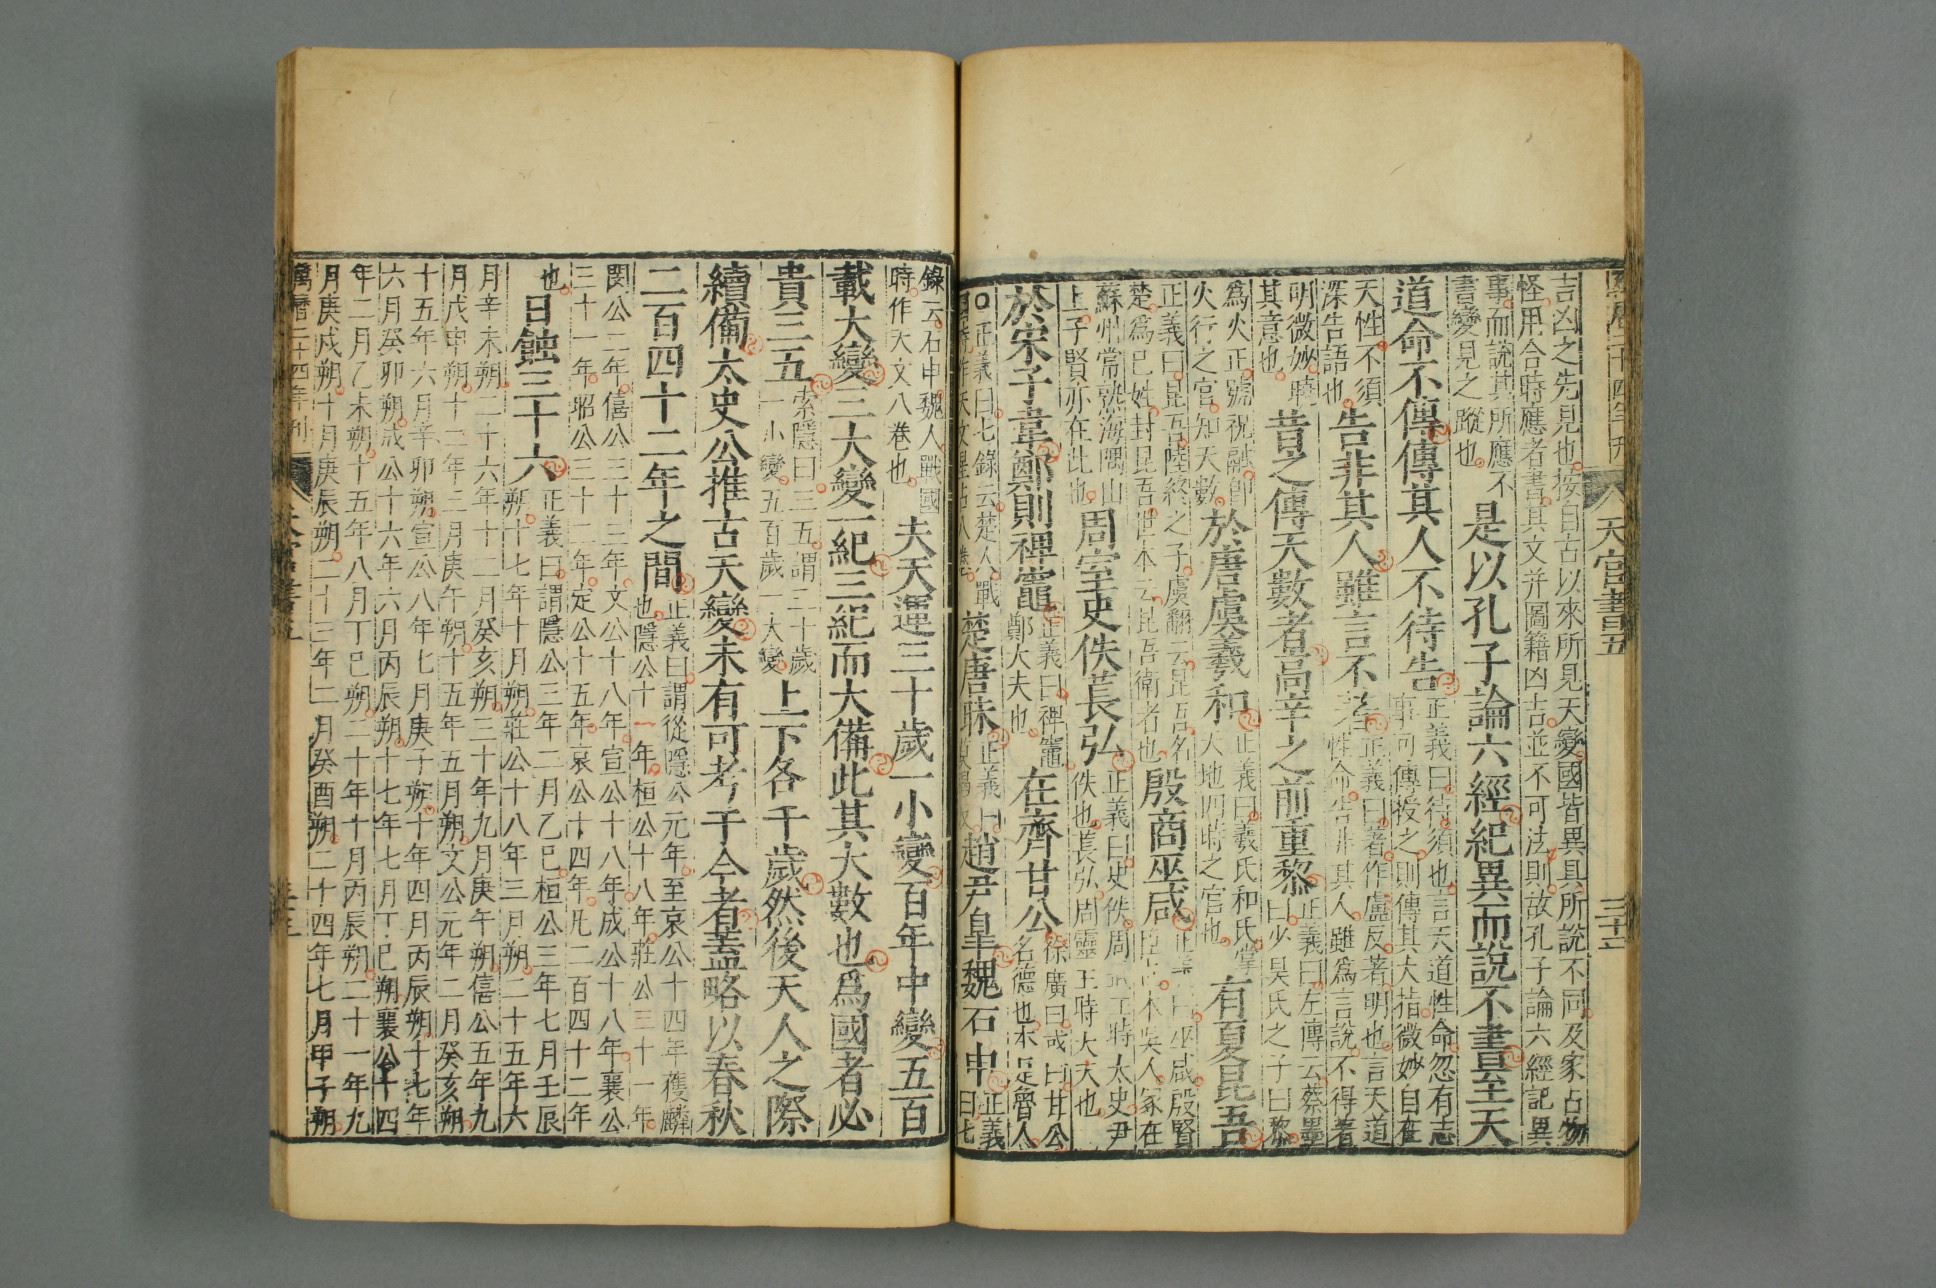 萬曆二十四年刊 天官書五 三十二
吉凶之先見也按自古以來所見天變國皆異具所說不同及家占物
怪用合時應者書其文并圖籍凶吉並不可法則故孔子論六經記異
事而說其所應不書變見之蹤也是以孔子論六經紀異而說不書至天
道命不傳傳其人不待告正義曰待須也言天道性命忽有志事可傳授之則傳其大指微妙自在
天性不須深告語也告非其人雖言不著正義曰著作慮反著明也言天道性命告非其人雖為言說不得著
明微妙曉其意也昔之傳天數者高辛之前重黎正義曰左傳云蔡墨曰少昊氏之子曰黎
為火正號祝融即火行之官知天數於唐虞羲和正義曰羲氏和氏掌天地四時之官也有夏昆吾
正義曰昆吾陸終之子虞翻云昆吾名楚為巳姓封昆吾世本云昆吾衛者也殷商巫咸正義曰巫咸殷賢臣也本吳人冢在
蘇州常熟海隅山上子賢亦在此也周室史佚萇弘正義曰史佚周武王時太史尹佚也萇弘周靈王時大夫也
於宋子韋鄭則裨竈正義曰裨竈鄭大夫也在齊甘公徐廣曰或曰甘公名德也本是魯人
○正義曰七錄云楚人戰國時作天文星占八卷楚唐眛正義上莫葛反趙尹皐魏石申正義曰七
錄云石申魏人戰國時作天文八卷也夫天運三十歲一小變百年中變五百
載大變三大變一紀三紀而大備此其大數也為國者必
貴三五索隱曰三五謂三十歲一小變五百歲一大變上下各千歲然後天人之際
續備太史公推古天變未有可考于今者蓋略以春秋
二百四十二年之間正義曰謂從隱公元年至哀公十四年獲麟也隱公十一年桓公十八年莊公三十一年
閔公二年僖公三十三年文公十八年宣公十八年成公十八年襄公
三十一年昭公三十二年定公十五年哀公十四年凡二百四十二年
也日蝕三十六正義曰謂隱公三年二月乙巳桓公三年七月壬辰朔十七年十月朔莊公十八年三月朔二十五年六
月辛未朔二十六年十二月癸亥朔三十年九月庚午朔僖公五年九
月戊申朔十二年三月庚午朔十五年五月朔文公元年二月癸亥朔
十五年六月辛卯朔宣公八年七月庚子朔十年四月丙辰朔十七年
六月癸卯朔成公十六年六月丙辰朔十七年七月丁巳朔襄公十四
年二月乙未朔十五年八月丁巳朔二十年十月丙辰朔二十一年九
月庚戌朔十月庚辰朔二十三年二月癸酉朔二十四年七月甲子朔
萬曆二十四年刊 天官書五 三十三